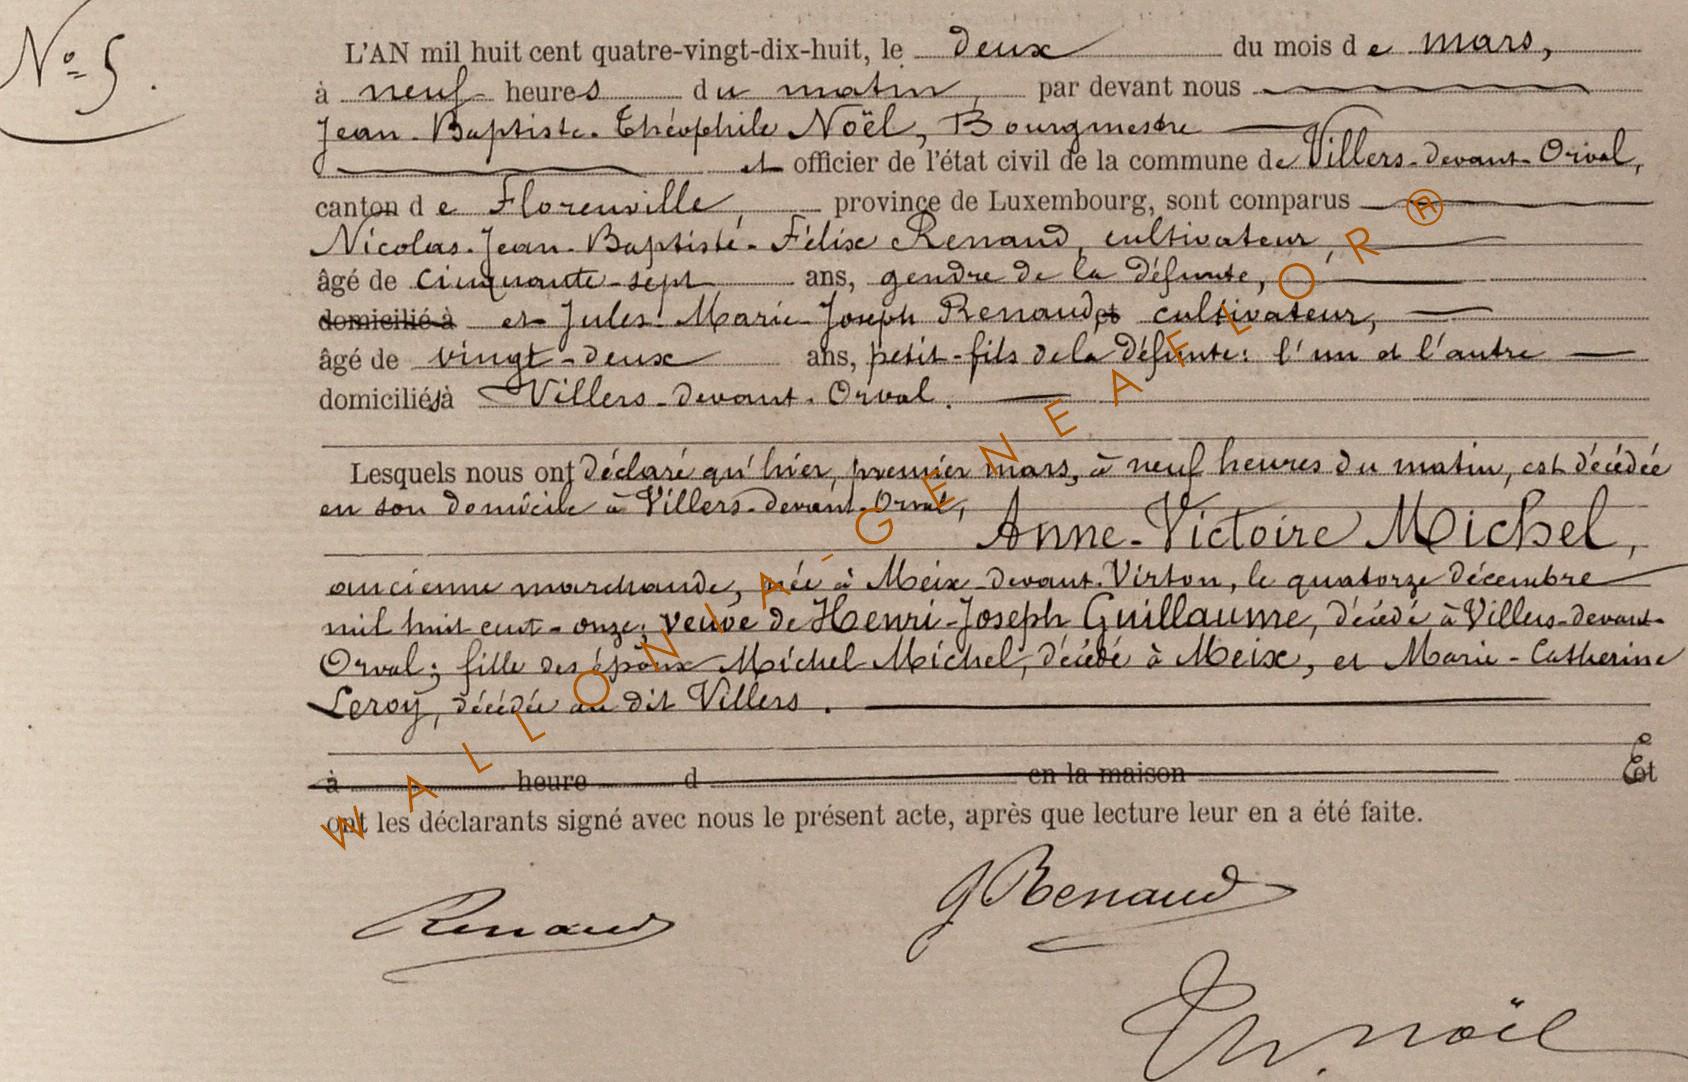 Nº 5.
L'AN mil huit cent quatre-vingt-dix-huit, le deux du mois de mars,
à neuf heures du matin, par devant nous
Jean-Baptiste-Théophile Noël, Bourgmestre
et officier de l'état civil de la commune de Villers-devant-Orval,
canton de Florenville, province de Luxembourg, sont comparus
Nicolas-Jean-Baptiste-Félix Renaud, cultivateur,
âgé de cinquante-sept ans, gendre de la défunte,
domicilié à et Jules-Marie-Joseph Renaud et cultivateur,
âgé de vingt-deux ans, petit-fils de la défunte: l'un et l'autre
domiciliés à Villers-devant-Orval.
Lesquels nous ont déclaré qu'hier, premier mars, à neuf heures du matin, est décédée
en son domicile à Villers-devant-Orval,
Anne-Victoire Michel,
ancienne marchande, née à Meix-devant-Virton, le quatorze décembre
mil huit cent-onze; veuve de Henri-Joseph Guillaume, décédé à Villers-devant-
Orval; fille des époux Michel Michel, décédé à Meix, et Marie-Catherine
Leroy, décédée au dit Villers.
à heure d en la maison Et
ont les déclarants signé avec nous le présent acte, après que lecture leur en a été faite.
Renaud
J Renaud
Th. Noël
WALLONIA-GENEAFLOR®